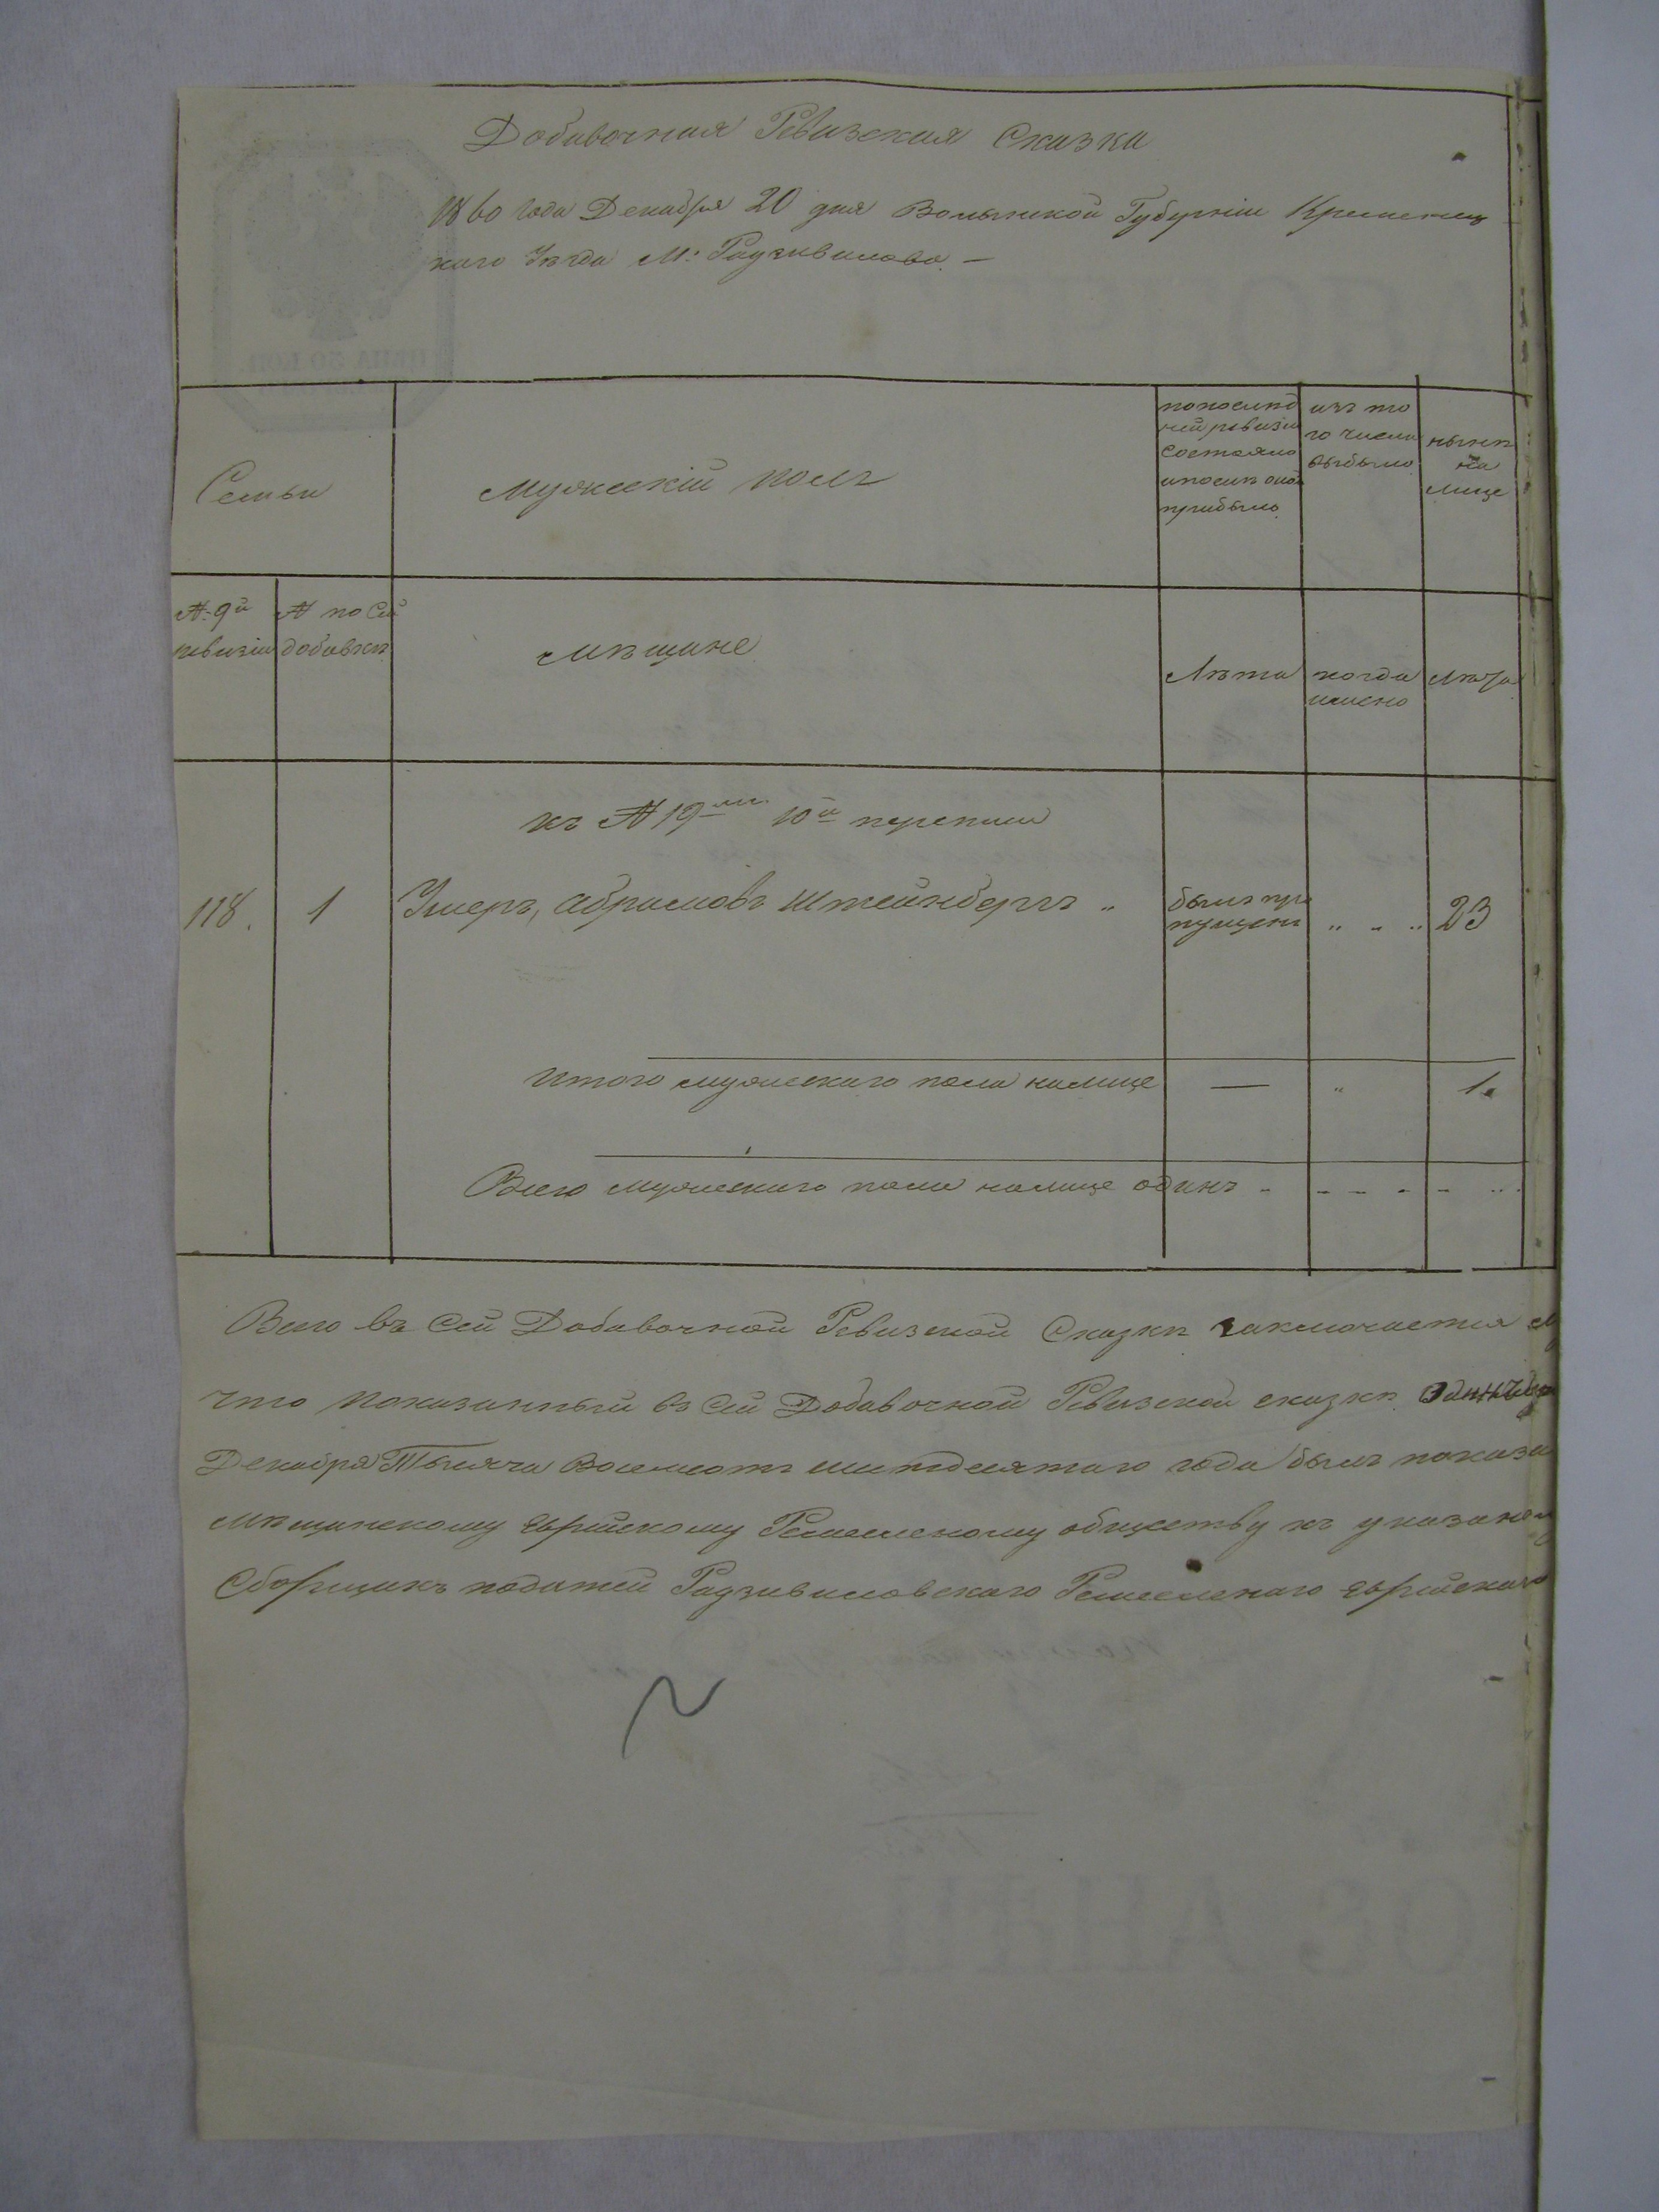 Добавочная Ревизская Сказка
1860 года Декабря 20 дня Волынской Губерніи Кременец
каго Уѣзда М: Радзивилова —
Семьи
Мужескій полъ
по послѣд
ней ревизіи
состояло
и послѣ оной
прибыло
изъ то
го числа
выбыло
нынѣ
на
лице
№ 9й
ревизіи
№ по сей
добавкѣ
Мѣщане
Лѣта
когда
имено
Лѣта
къ № 19му 10й переписи
118. 1 Умеръ, Абрамовъ Штейнбергъ „ былъ про
пущенъ „ „ „ 23
Итого мужескаго пола налице — „ 1.
Всего мужескаго пола налице одинъ
Всего въ сей Добавочной Ревизской Сказкѣ заключается
что показанный въ сей Добавочной Ревизской сказкѣ Одинъ
Декабря Тысяча Восемсотъ шестдесятаго года былъ
мѣщанскому еврейскому Ремесленому обществу къ
Сборщикъ податей Радзивиловскаго Ремесленаго еврейскаго
ЦѢНА 30 КОП